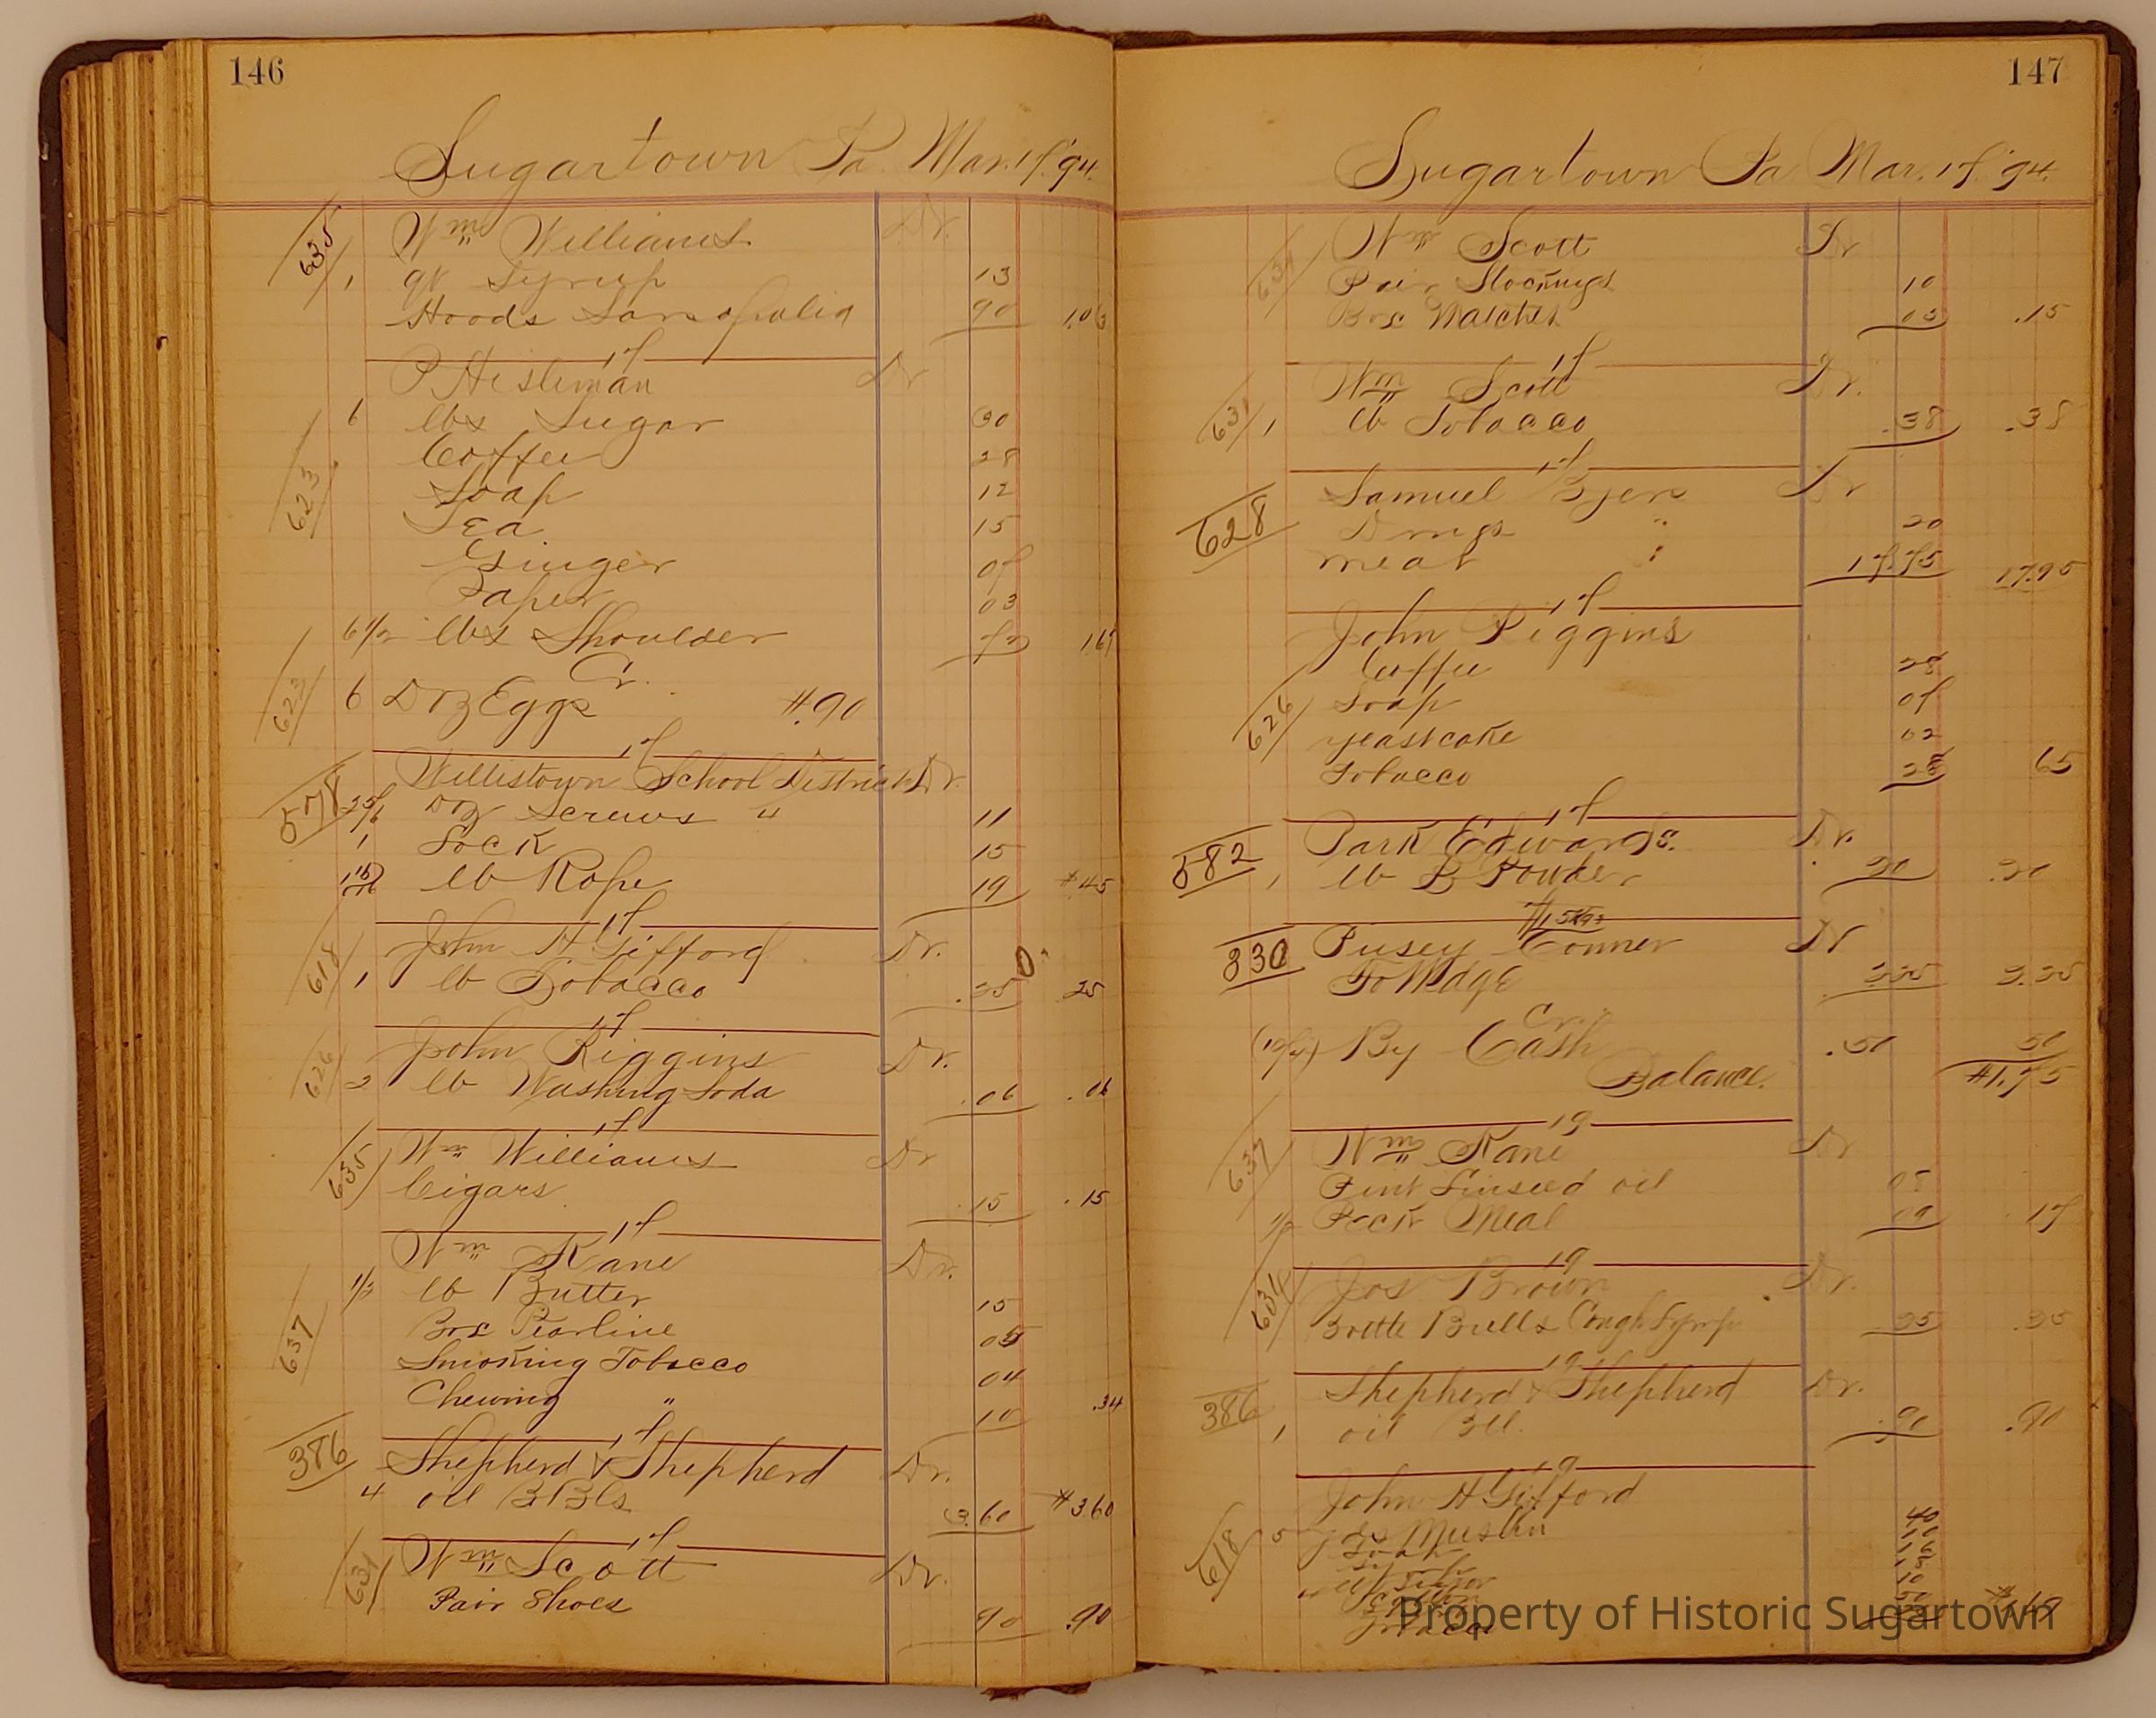 146
Sugartown Pa. Mar. 17. '94.
635 Wm Williams Dr.
1 qt Syrup 13
Hoods Sarsapalia 90 1.03
17
P Hesleman Dr
623 6 lbs Sugar 30
Coffee 28
Soap 12
Tea 15
Ginger 07
Paper 03
6 1/2 lbs Shoulder 72 1.67
Cr.
623 6 Doz Eggs #.90
17
578 Willistown School District Dr.
Doz Screws " 11
1 Lock 15
lb Rope 19 #45
17
John H Gifford Dr.
618 1 lb Tobacco .25 25
17
626 John Riggins Dr.
2 lb Washing Soda .06 .06
17
635 Wm Williams Dr
Cigars .15 .15
17
Wm Kane Dr.
637 1/2 lb Butter 15
Box Pearline 05
Smoking Tobacco 04
Chewing " 10 .34
17
386 Shepherd & Shepherd Dr.
4 oil BBls 3.60 #3.60
17
631 Wm Scott Dr.
Pair Shoes 90 .90
147
Sugartown Pa Mar. 17. '94.
631 Wm Scott Dr
Pair Stockings 10
Box Matches 05 .15
17
Wm Scott Dr.
631 1 lb Tobacco .38 .38
17
628 Samuel Byers Dr
Drugs " 20
meat " 17.75 17.95
17
John Riggins
Coffee 28
626 Soap 07
yeastcake 02
Tobacco 28 65
17
582 Park Edwards. Dr.
1 lb B Powder 20 .20
330 Pusey Conner Dr
To Mdge 2.25 2.25
Cr.
By Cash .50 50
Balance. #1.75
19
637 Wm Kane Dr
Pint Linseed oil 08
1/2 Peck Meal 09 17
19
636 Jos Brown Dr.
Bottle Bulls Cough Syrup 25 .25
19
386 Shepherd & Shepherd Dr.
1 oil Bll. .90 .90
19
John H Gifford
618 5 yds Muslin 40
Soap
Property of Historic Sugartown